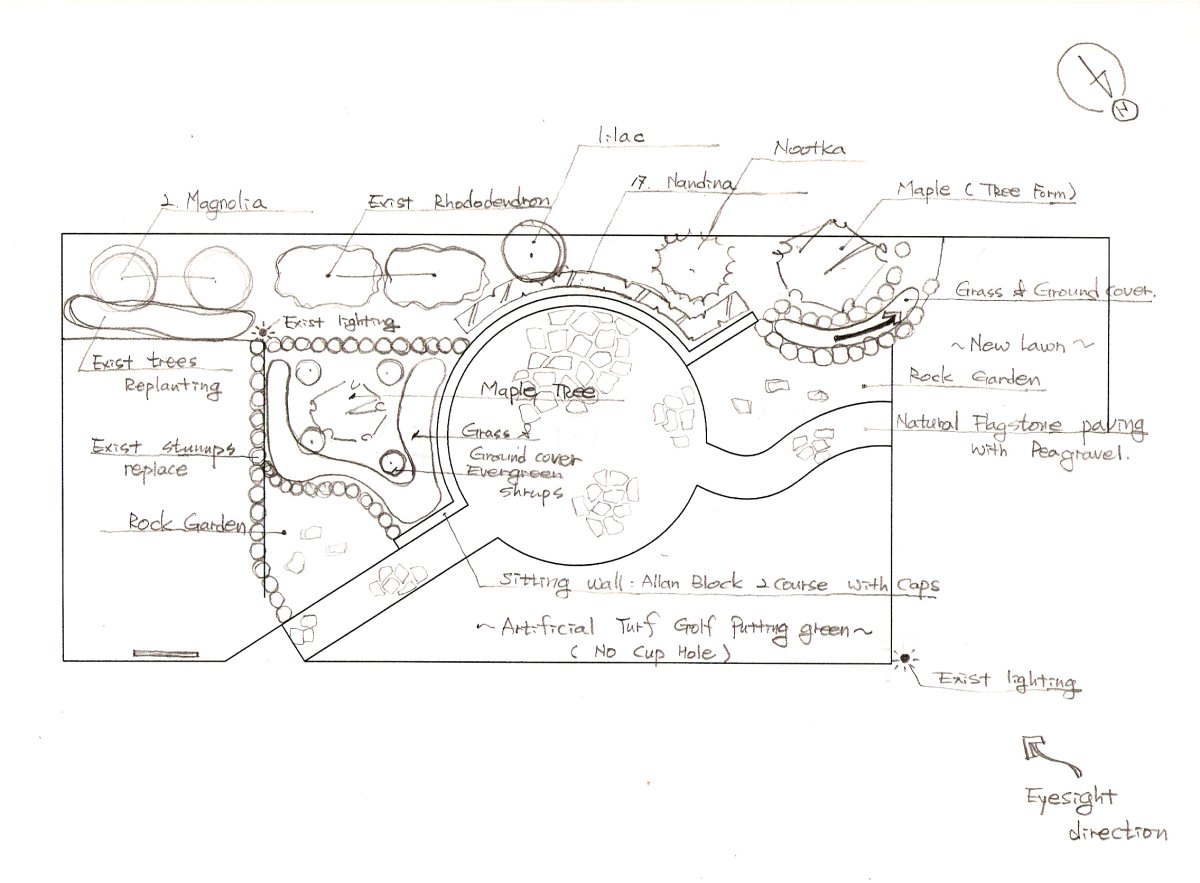 N
lilac
Nootka
17. Nandina
2. Magnolia
Exist Rhododendron
Maple (Tree Form)
Grass & Ground cover.
Exist lighting
~ New Lawn ~
Exist trees
Replanting
Rock Garden
Maple Tree
Natural Flagstone paving
with Peagravel.
Grass &
Ground cover
Evergreen
shrups
Exist stumps
replace
Rock Garden
Sitting wall: Allan Block 2 course with Caps
~ Artificial Turf Golf Putting green ~
( No Cup Hole )
Exist lighting
Eyesight
direction